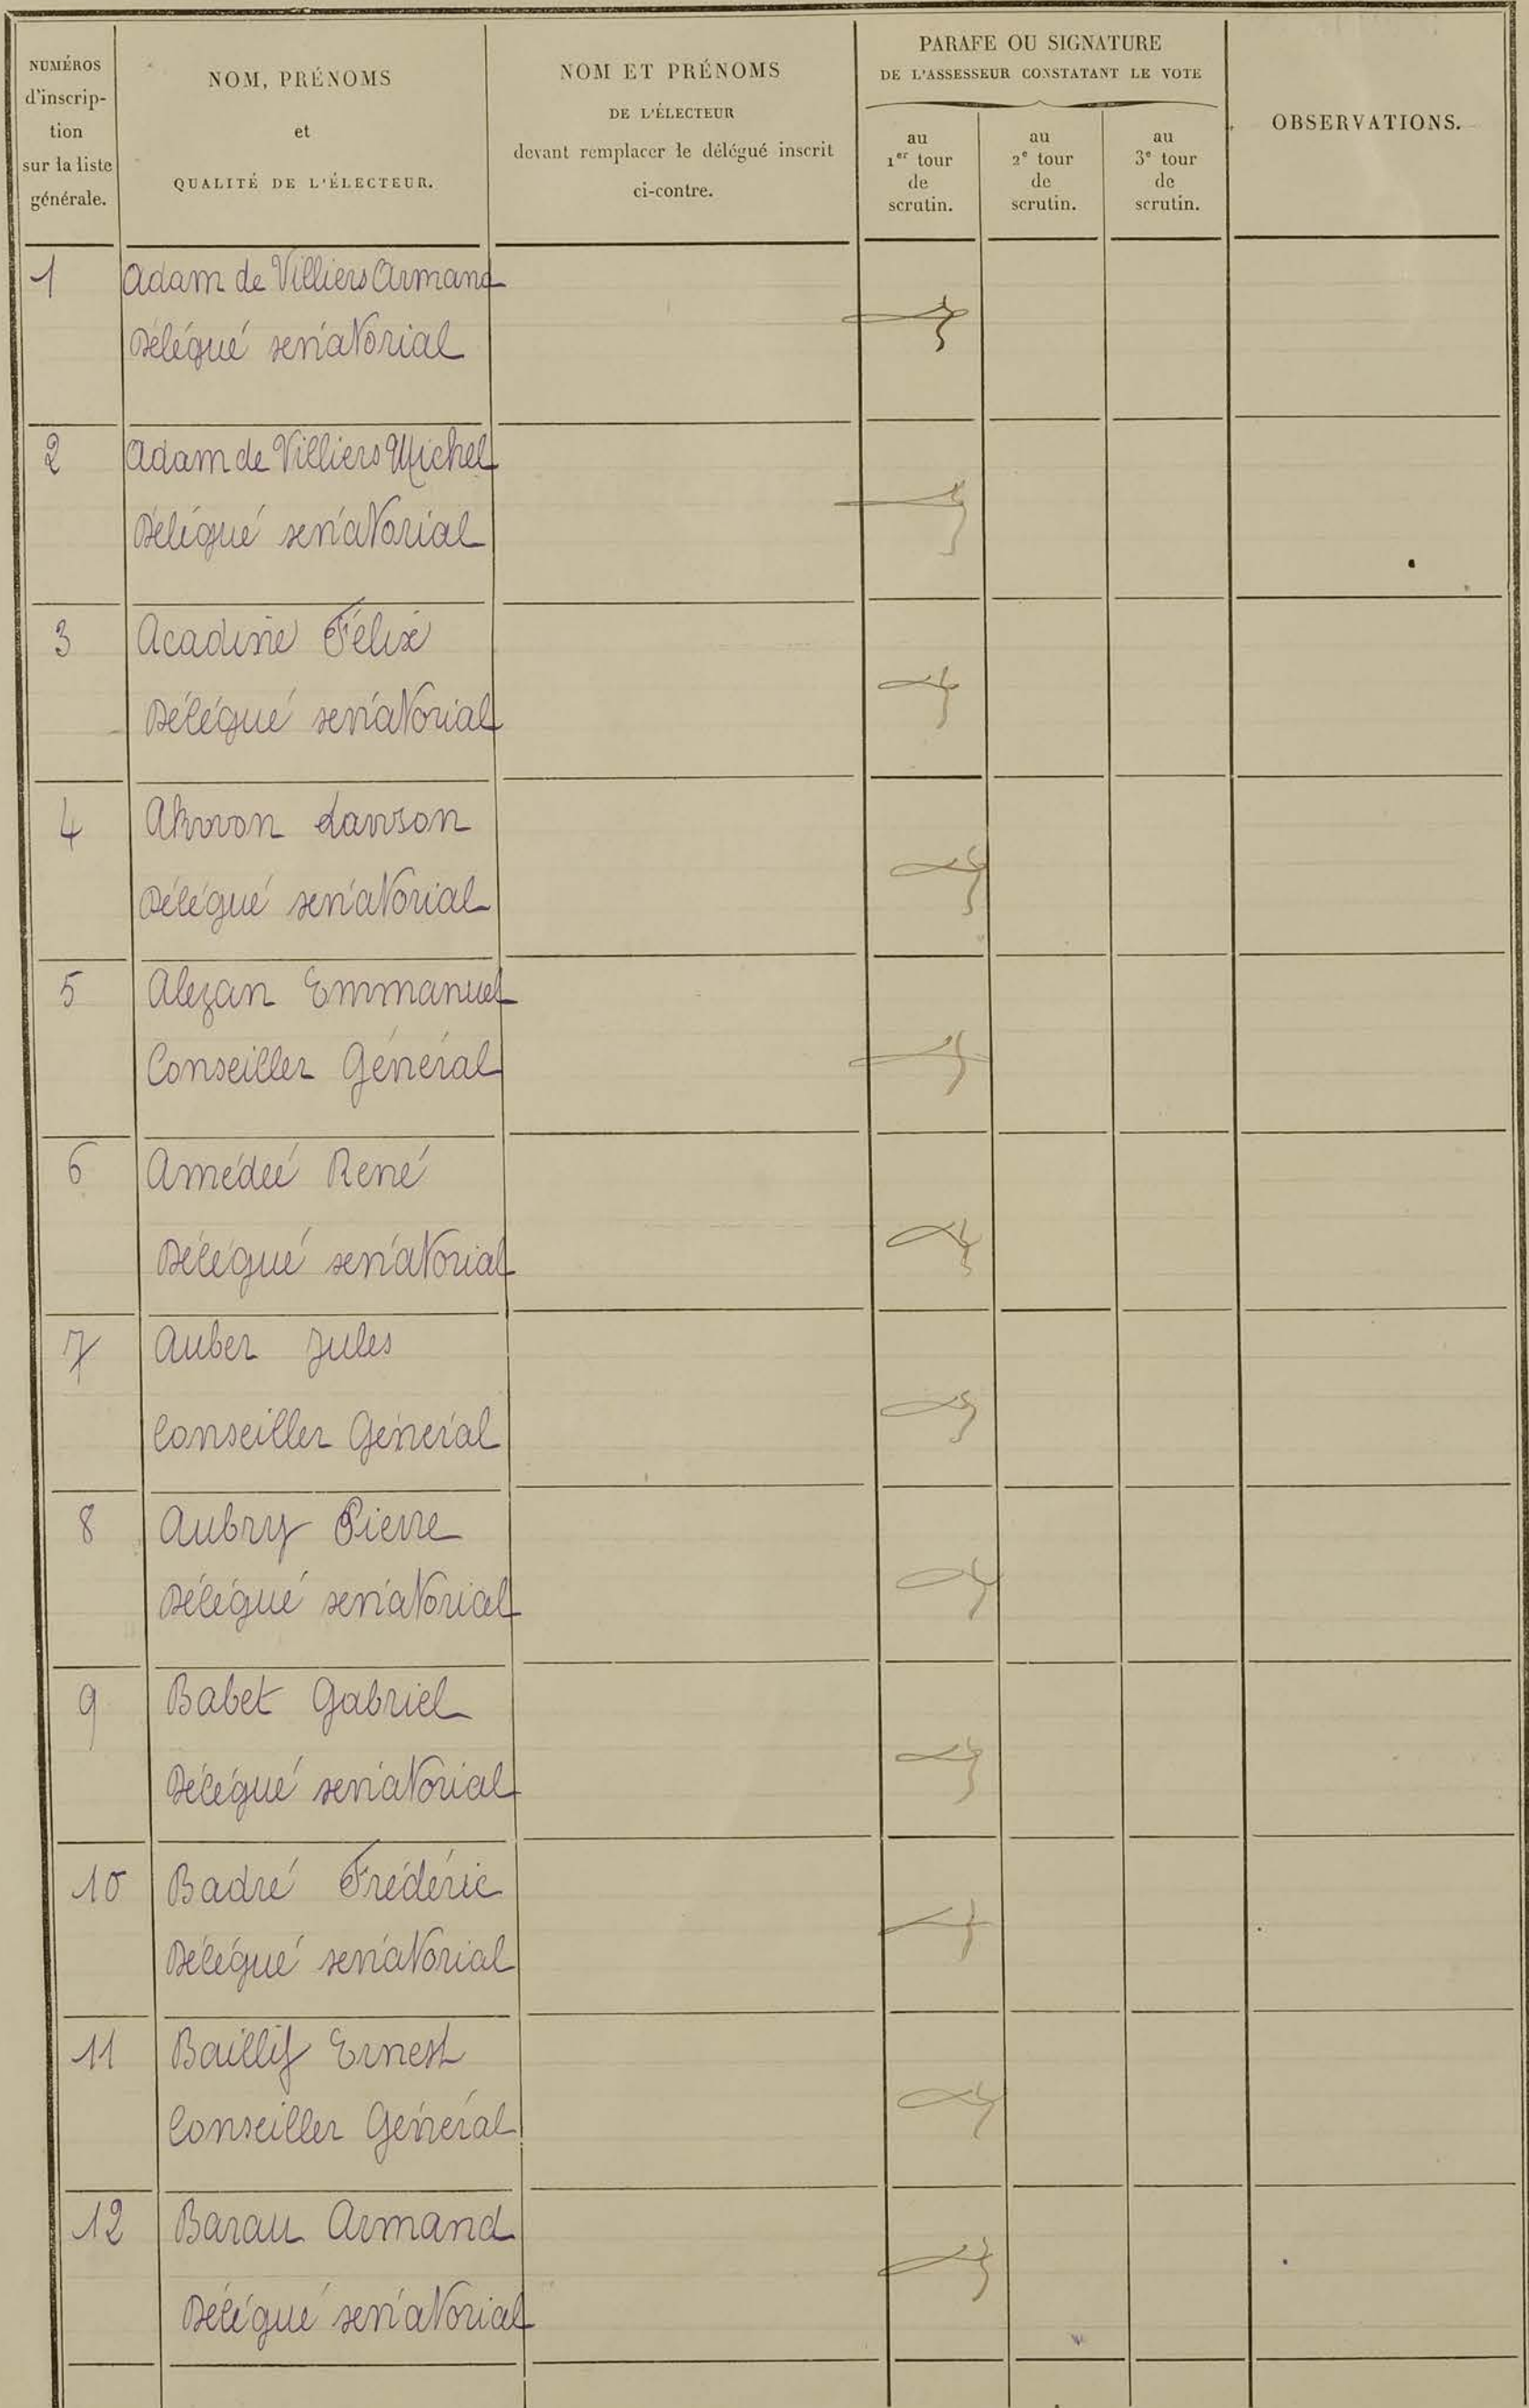 NUMÉROS
d'inscrip-
tion
sur la liste
générale.
NOM, PRÉNOMS
et
QUALITÉ DE L'ÉLECTEUR.
NOM ET PRÉNOMS
DE L'ÉLECTEUR
devant remplacer le délégué inscrit
ci-contre.
PARAFE OU SIGNATURE
DE L'ASSESSEUR CONSTATANT LE VOTE
au
1er tour
de
scrutin.
au
2e tour
de
scrutin.
au
3e tour
de
scrutin.
OBSERVATIONS.
1 Adam de Villiers Armand
Délégué sénatorial
2 Adam de Villiers Michel
Délégué sénatorial
3 Acadine Félix
Délégué sénatorial
4 Lawson
Délégué sénatorial
5 Alezan Emmanuel
Conseiller Général
6 Amédée René
Délégué sénatorial
7 Auber Jules
Conseiller Général
8 Aubry Pierre
Délégué sénatorial
9 Babet Gabriel
Délégué sénatorial
10 Badré Frédéric
Délégué sénatorial
11 Baillif Ernest
Conseiller Général
12 Barau Armand
Délégué sénatorial